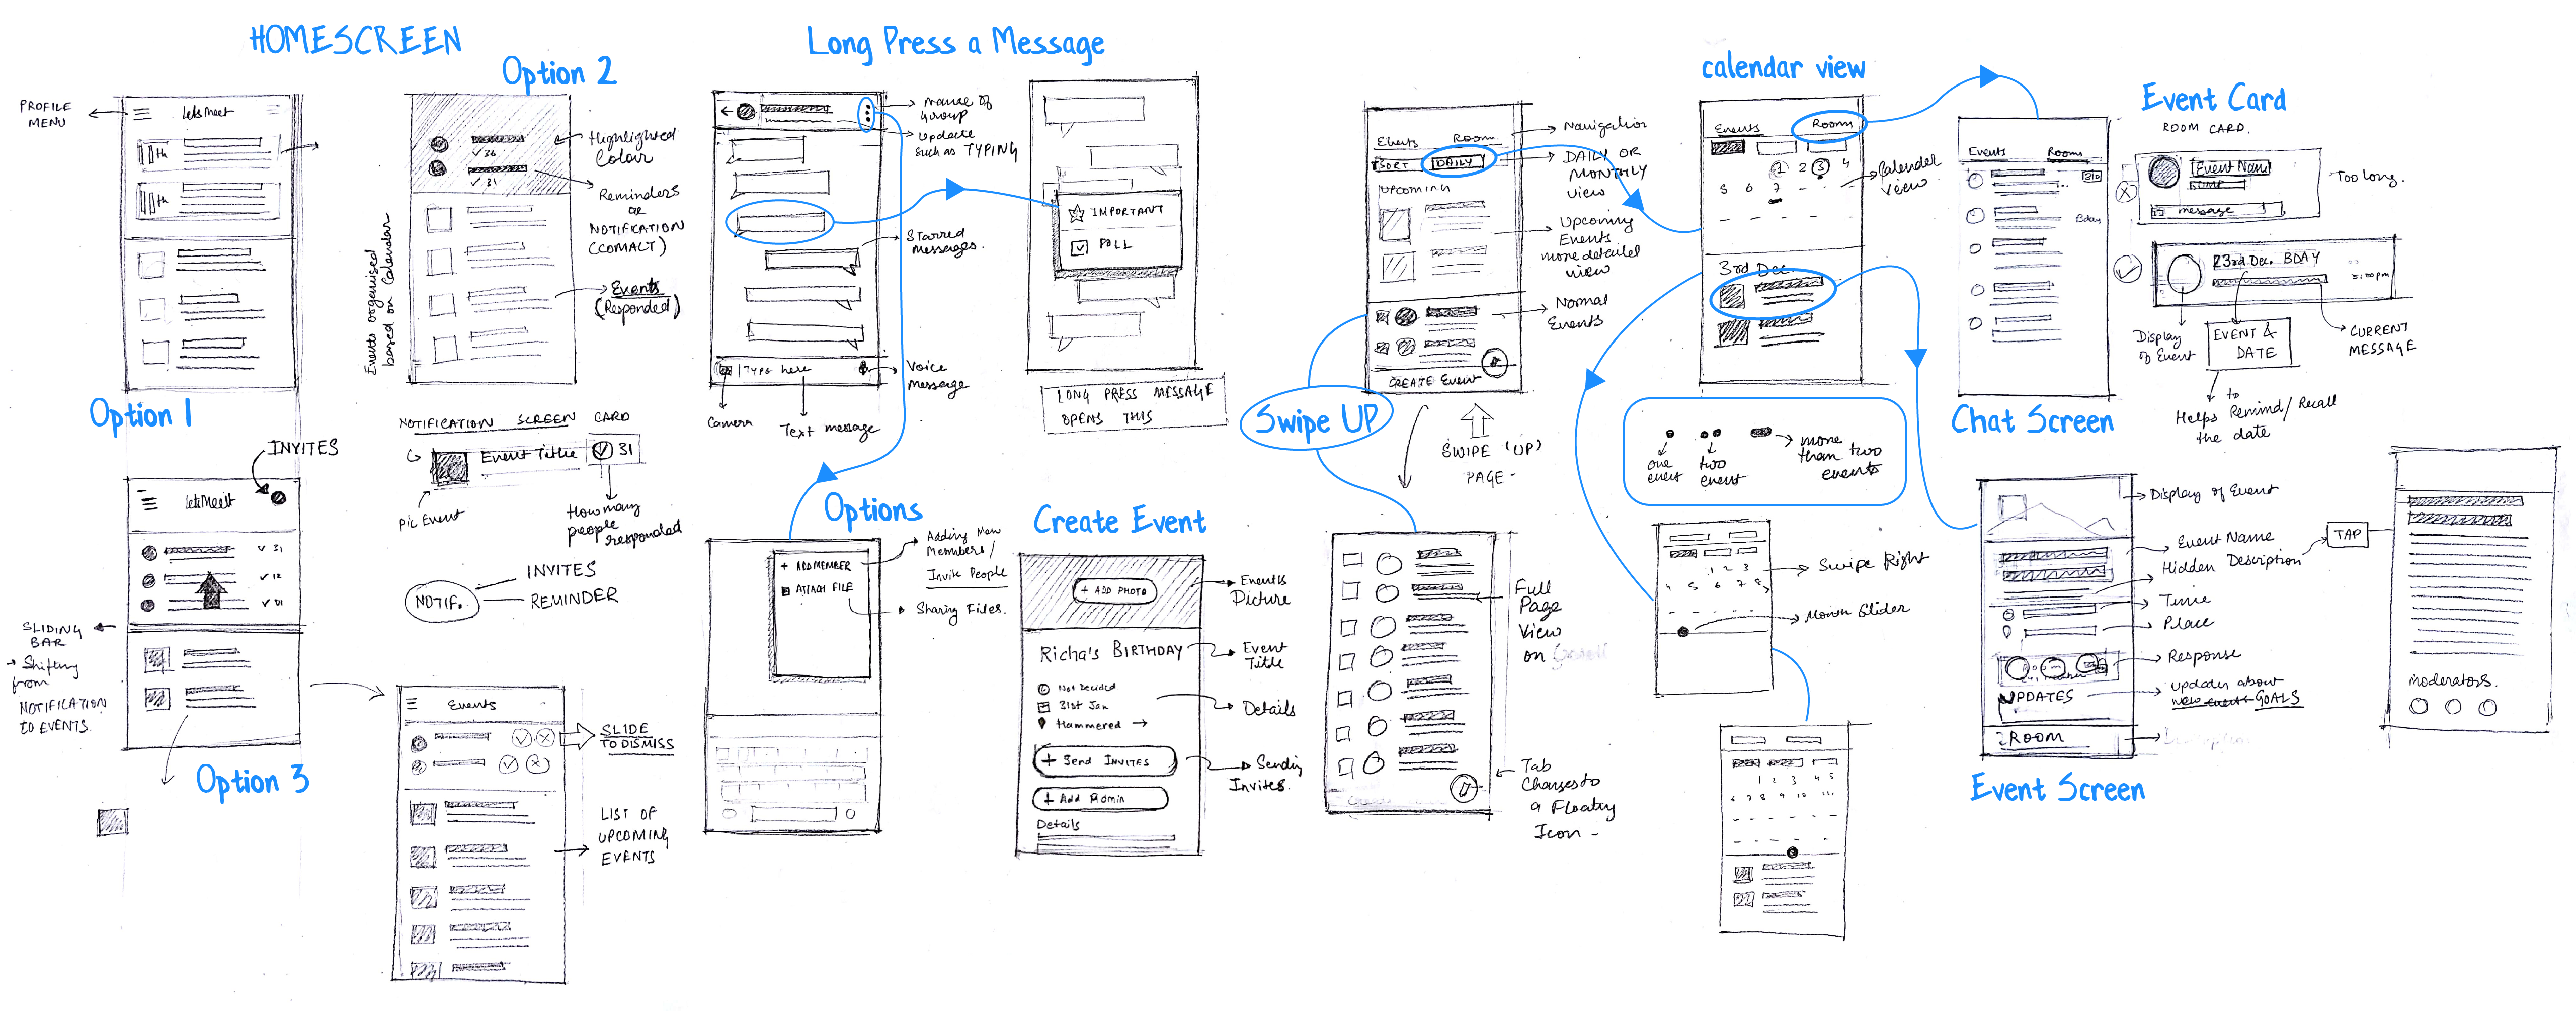 HOMESCREEN
Option 2
PROFILE
MENU
LetsMeet
Highlighted
Colour
✓ 36
✓ 31
Reminders
or
NOTIFICATION
Events
(Responded)
Events organised
based on Calendar
Option 1
INVITES
LetsMeet
✓ 31
✓ 12
SLIDING
BAR
→ Shifting
from
NOTIFICATION
TO EVENTS.
Option 3
NOTIFICATION SCREEN CARD
Event Title
31
Pic Event
How many
people
responded
NOTIF.
INVITES
REMINDER
Events
SLIDE
TO DISMISS
LIST OF
UPCOMING
EVENTS
Long Press a Message
Name of
group
update
such as TYPING
Starred
messages.
Type here
Voice
Message
Camera
Text message
IMPORTANT
POLL
LONG PRESS MESSAGE
OPENS THIS
Options
+ ADD MEMBER
ATTACH FILE
Adding New
Members/
Invite People
Sharing Files.
Create Event
+ ADD PHOTO
Events
Picture
Richa's BIRTHDAY
Event
Title
Not Decided
31st Jan
Hammered →
Details
+ Send INVITES
Sending
Invites.
+ Add Admin
Details
Events Room
Navigation
SORT DAILY
DAILY OR
MONTHLY
view
UPCOMING
Upcoming
Events
more detailed
view
Normal
Events
CREATE Event
Swipe UP
SWIPE (UP)
PAGE -
Full
Page
View
on
Tab
Changes to
a Floating
Icon -
calendar view
Events Rooms
1 2 3 4
5 6 7
Calender
view.
3rd Dec
one
event
two
event
more
than two
events
1 2 3
4 5 6 7 8
Swipe Right
Month Slider
1 2 3 4 5
Events Rooms
Bday
Chat Screen
Event Card
ROOM CARD.
Event Name
message
Too long.
23rd Dec. BDAY
Display
of Event
EVENT &
DATE
CURRENT
MESSAGE
to
Helps Remind/Recall
the date
Display of Event
Event Name
Hidden Description
TAP
Time
Place
Response
UPDATES
updates about
new event GOALS
ROOM
Event Screen
moderators.